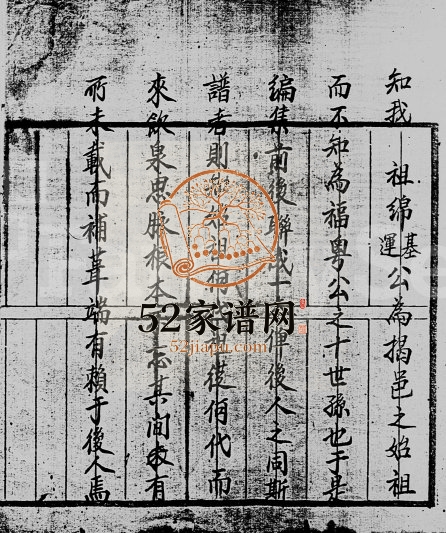 知我 祖綿基運公為揭邑之始祖
而不知為福粵公之十世孫也于是
編集前後聯成一 俾後人之同斯
譜者則 祖何 從何代而
來飲泉思脉根本 忘其間 有
所未載而補葺端有賴于後人焉
52家谱网
52jiapu.com